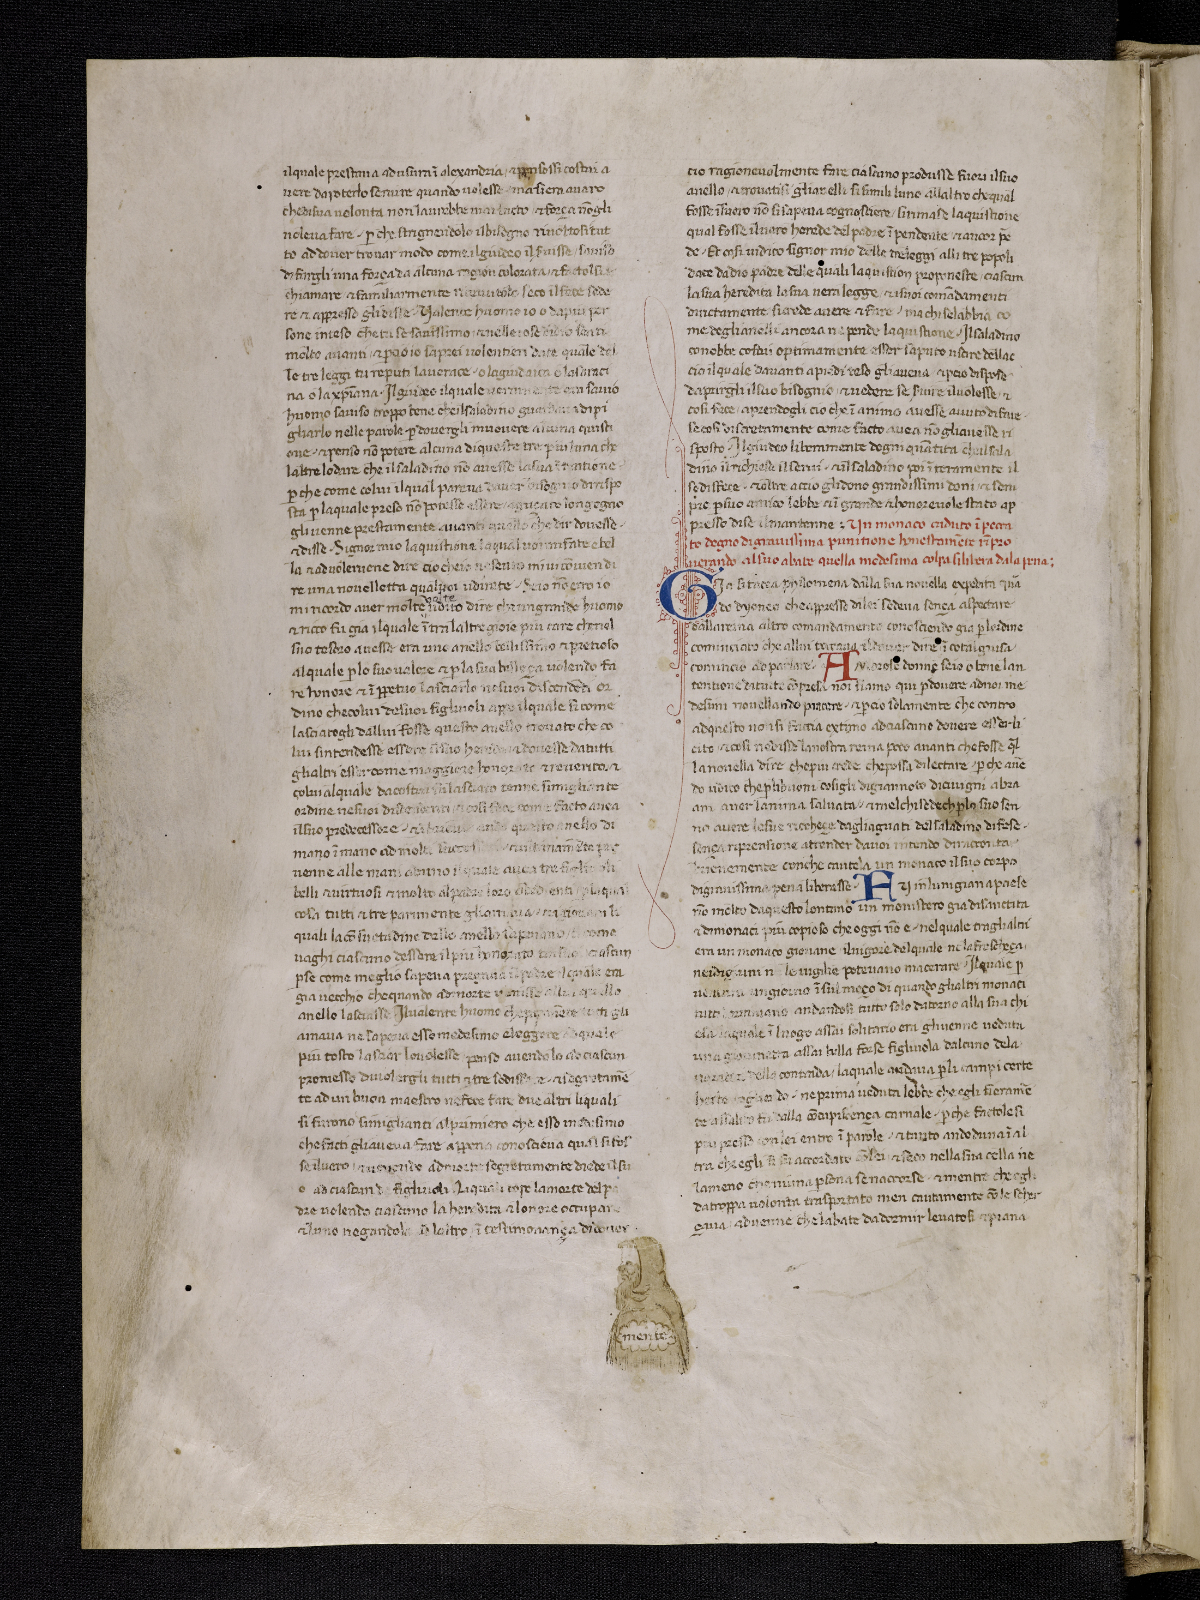 il quale prestava ad usura ī alexandria ⁊ pensossi costui a
vere da poterlo servire quando volesse · ma si era avaro
che di sua volonta non l avrebbe mai facto · ⁊ força nō gli
voleva fare · ꝑ che strignendolo il bisogno rivoltosi tut
to ad dover trovar modo come il giudeo il servisse · saviso
di fargli una força da alcuna ragion colorata · ⁊ factolsi
chiamare ⁊ familiarmente ricevuto seco il fece sede
re ⁊ appresso gli disse · Valente huomo io o da piu per
sone inteso che tu se savissimo · ⁊ nelle cose di dio senti
molto avanti · ⁊ ꝑcio io saprei volentieri da te quale del
le tre leggi tu reputi la verace · o la giudaica o la saraci
na o la xp̄iana · Il giudeo il quale veramente era savio
huomo saviso troppo bene che il saladino guardava di pi
gliarlo nelle parole ꝑ dovergli muovere alcuna quisti
one · ⁊ penso nō potere alcuna di queste tre piu luna che
laltre lodare che il saladino nō avesse la sua ī tentione ·
ꝑ che come colui il qual pareva daver bisogno di rispo
sta ꝑ la quale preso nō potesse essere · aguçato longegno
gli venne prestamente avanti quello che dir dovesse ·
⁊ disse · Signor mio la quistione la qual voi mi fate e bel
la ⁊ ad volervene dire cio che io ne sento mi vi cōvien di
re una novelletta qual voi udirete · Se io nō erro io
mi ricordo aver molte volte udito dire che un grande huomo
⁊ ricco fu gia il quale ītra laltre gioie piu care che nel
suo tesoro avesse era uno anello bellissimo ⁊ pretioso
al quale ꝑ lo suo valore ⁊ ꝑ la sua belleça volendo fa
re honore ⁊ ī ꝑpetuo lasciarlo ne suoi discendēti or
dino che colui de suoi figliuoli apo il quale si come
lasciatogli da llui fosse questo anello trovato che co
lui sintendesse essere il suo herede ⁊ dovesse da tutti
gli altri esser come maggiore honorato ⁊ reverito · ⁊
colui al quale da costui fu lasciato tenne simigliante
ordine ne suoi discendenti ⁊ cosi fece come facto avea
il suo predecessore · ⁊ ī brieve ando questo anello di
mano ī mano ad molti successori · ⁊ ultimamēte per
venne alle mani ad uno il quale avea tre figliuoli
belli ⁊ virtuosi ⁊ molto al padre loro obedienti ꝑ la qual
cosa tutti ⁊ tre parimente gli amava · ⁊ i giovani li
quali la cōsuetudine dello anello sapeano si come
vaghi ciascuno dessere il piu honorato tra suoi ciascun
ꝑ se come meglio sapeva pregava il padre il quale era
gia vecchio che quando ad morte venisse allui quello
anello lasciasse · Il valente huomo che parimēte tutti gli
amava ne sapeva esso medesimo eleggere ad quale
piu tosto lasciar lo volesse penso avendolo ad ciascun
promesso di volergli tutti ⁊ tre sodisfare · ⁊ segretamē
te ad un buon maestro ne fece fare due altri li quali
si furono simiglianti al primiero che esso medesimo
che facti gli aveva fare appena conosceva qual si fosse
se il vero · ⁊ venendo ad morte segretamente diede il su
o ad ciascun de figliuoli · Li quali dopo la morte del pa
dre volendo ciascuno la heredita ⁊ lonore occupare
⁊ luno negandola ad laltro · ī testimonança di dover
mente
cio ragionevolmente fare ciascuno produsse fuori il suo
anello · ⁊ trovatisi gli anelli si simili luno allaltro che qual
fosse il vero nō si sapeva cognoscere · si rimase la quistione
qual fosse il vero herede del padre ī pendente · ⁊ ancor pē
de · Et cosi vi dico signor mio delle tre leggi alli tre popoli
date da dio padre delle quali la quistion proponeste · ciascun
la sua heredita la sua vera legge · ⁊ i suoi comādamenti
dirictamente si crede avere ⁊ fare · ma chi se labbia co
me degli anelli ancora ne pende la quistione · Il saladino
conobbe costui optimamente esser saputo uscire del lac
cio il quale davanti a piedi teso gli aveva · ⁊ ꝑcio dispose
da prirgli il suo bisogno · ⁊ vedere se servire il volesse · ⁊
cosi fece · aprendogli cio che ī animo avesse avuto di fare ·
se cosi discretamente come facto avea nō gli avesse ri
sposto · Il giudeo liberamente dogni quātita che il sala
dino il richiese il servi · ⁊ il saladino poi īteramente il
sodisfece · ⁊ oltre accio gli dono grandissimi doni · ⁊ sem
pre ꝑ suo amico lebbe ⁊ ī grande ⁊ honorevole stato ap
presso di se il mantenne : Un monaco caduto ī pecca
to degno di gravissima punitione honestamēte rīpro
verando al suo abate quella medesima colpa si libera dala pena :
Gia si tacea philomena dalla sua novella expedita · quā
do dyoneo che appresso di lei sedeva sença aspectare
dalla reina altro comandamento conoscendo gia ꝑ lordine
cominciato che allui toccava il dover dire ī cotal guisa
comincio ad parlare · Amorose donne se io o bene lan
tentione di tutte cōpresa noi siamo qui ꝑ dovere ad noi me
desimi novellando piacere · ⁊ ꝑcio solamente che contro
ad questo non si faccia extimo ad ciascuno dovere esser li
cito · ⁊ cosi ne disse la nostra reina poco avanti che fosse ql̄
la novella dire che piu crede che possa dilectare · ꝑ che avē
do udito che ꝑ li buoni cōsigli di giannoto di civigni abra
am aver lanima salvata · ⁊ melchisedech ꝑ lo suo sen
no avere le sue riccheçe dagli aguati del saladino difese ·
sença riprensione attender da voi intendo di raccontar
brievemente con che cautela un monaco il suo corpo
di gravissima pena liberasse · Fu in lunigiana paese
nō molto da questo lontano un monistero gia di sanctita
⁊ di monaci piu copioso che oggi nō e · nel quale tra gli altri
era un monaco giovane il vigore del quale ne la frescheça
ne i digiuni ne le vigilie potevano macerare · Il quale ꝑ
ventura un giorno ī sul meço di quando gli altri monaci
tutti dormivano andandosi tutto solo datorno alla sua chi
esa la quale ī luogo assai solitario era gli venne veduta
una giovinetta assai bella forse figliuola dalcuno de la
voratori della contrada · la quale andava ꝑ li campi certe
herbe cogliendo · ne prima veduta lebbe che egli fierame
te assalito fu dalla cōcupisença carnale · ꝑ che factolesi
piu presso con lei entro ī parole · ⁊ tanto ando duna ī al
tra che egli si fu accordato cō lei · ⁊ seco nella sua cella ne
la meno che niuna ꝑsona se naccorse · ⁊ mentre che egli
da troppa volonta trasportato men cautamente cō le scher
çava · advenne che labate da dormir levatosi ⁊ piana